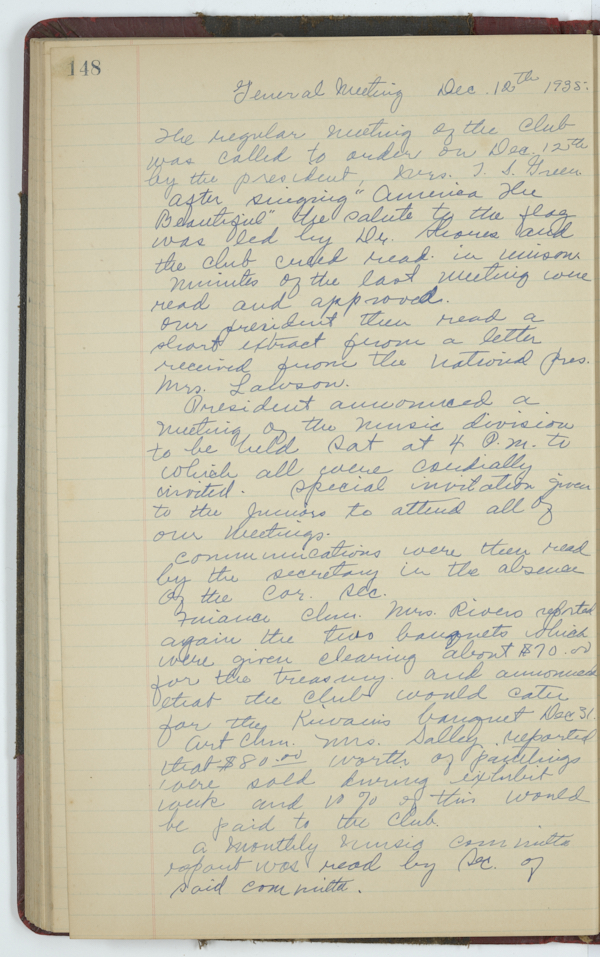 148
General Meeting Dec. 12th 1935.
The regular meeting of the Club
was called to order on Dec. 12th
by the president, Mrs. T. S. Green
After singing "America the
Beautiful" the salute to the flag
was led by Dr. and
the club creed read in unison.
Minutes of the last meeting were
read and approved.
Our president then read a
short extract from a letter
received from the national pres.
Mrs. Lawson.
President announced a
meeting of the music division
to be held Sat at 4 P.M. to
which all were cordially
invited. Special invitation given
to the Juniors to attend all of
our meetings.
Communications were then read
by the secretary in the absence
of the Cor. Sec.
Finance Chm. Mrs. Rivers reported
again the two banquets which
were given clearing about $70.00
for the treasury. and announced
that the club would cater
for the Kiwanis banquet Dec 31.
Art Chm. Mrs. Salley reported
that $80.00 worth of paintings
were sold during exhibit
week and 10 % of this would
be paid to the Club.
A monthly music committe
report was read by Sec. of
said committe.